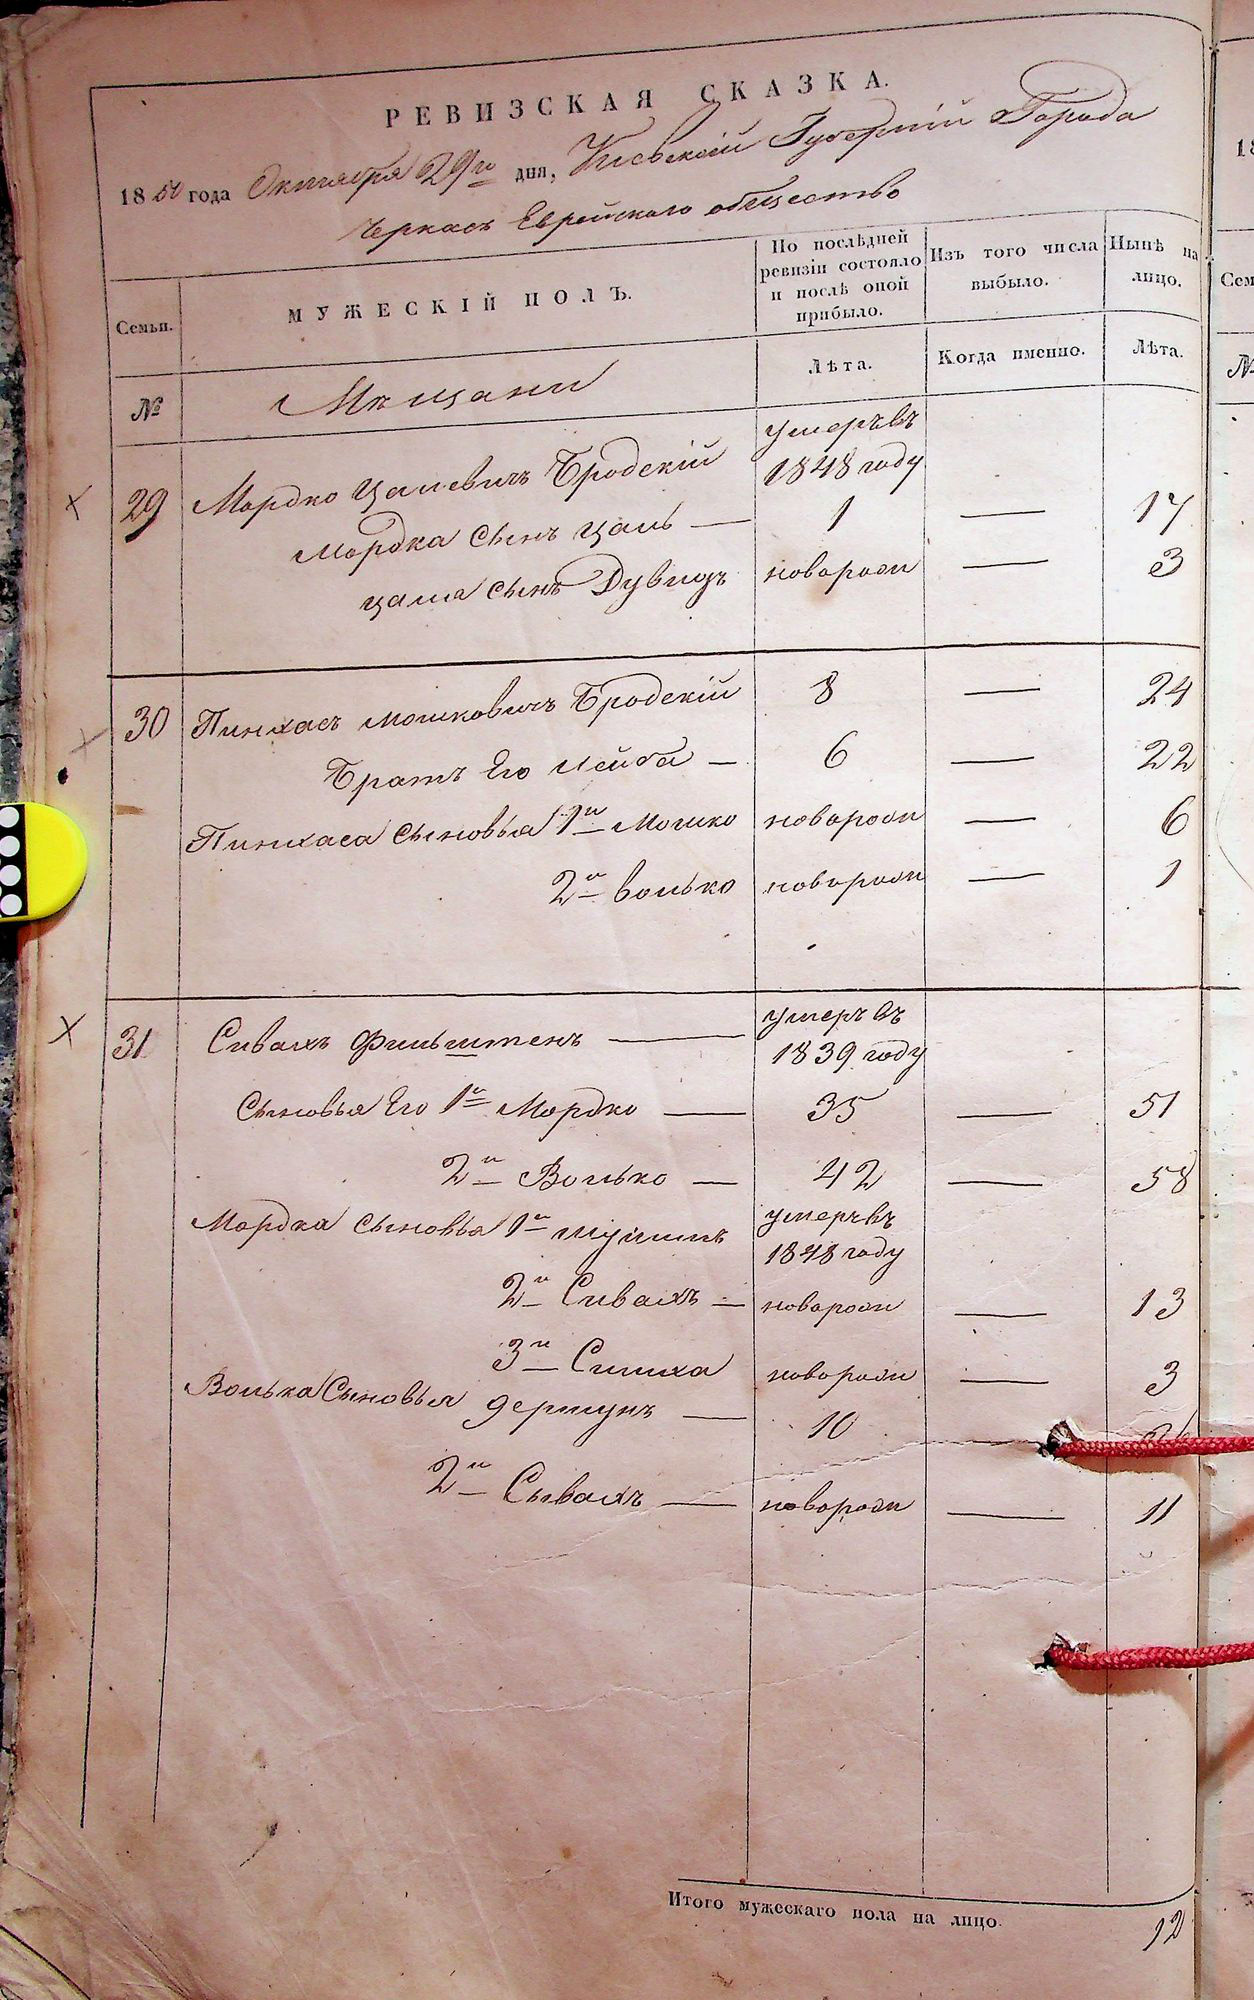 РЕВИЗСКАЯ СКАЗКА.
1850 года Октября 29го дня, Кіевскій Губерніи Города
Черкасъ Еврейскаго общество
Семьи. МУЖЕСКІЙ ПОЛЪ. По послѣдней ревизіи состояло и послѣ оной прибыло. Изъ того числа выбыло. Нынѣ на лицо.
№ Мѣщани Лѣта. Когда именно. Лѣта.
29 Мордко Цалевичъ Бродскій умеръ въ 1848 году
Мордка сынъ Цаль — 1 — 17
Цаля сынъ Дувидъ новорожи — 3
30 Пинхасъ Мошковичъ Бродскій 8 — 24
Братъ Его Лейба — 6 — 22
Пинхаса сыновья 1й Мошко новорожи — 6
2й Волько новорожи — 1
31 Сивахъ Фильштенъ — умеръ въ 1839 году
Сыновья Его 1й Мордко — 35 — 51
2й Волько — 42 — 58
Мордка сыновья 1й умеръ въ 1848 году
2й Сивахъ — новорожи — 13
3й Симха новорожи — 3
Волька Сыновья Гершунъ — 10 —
2й Сывахъ — новорожи — 11
Итого мужескаго пола на лицо. 12
18
Сем
№